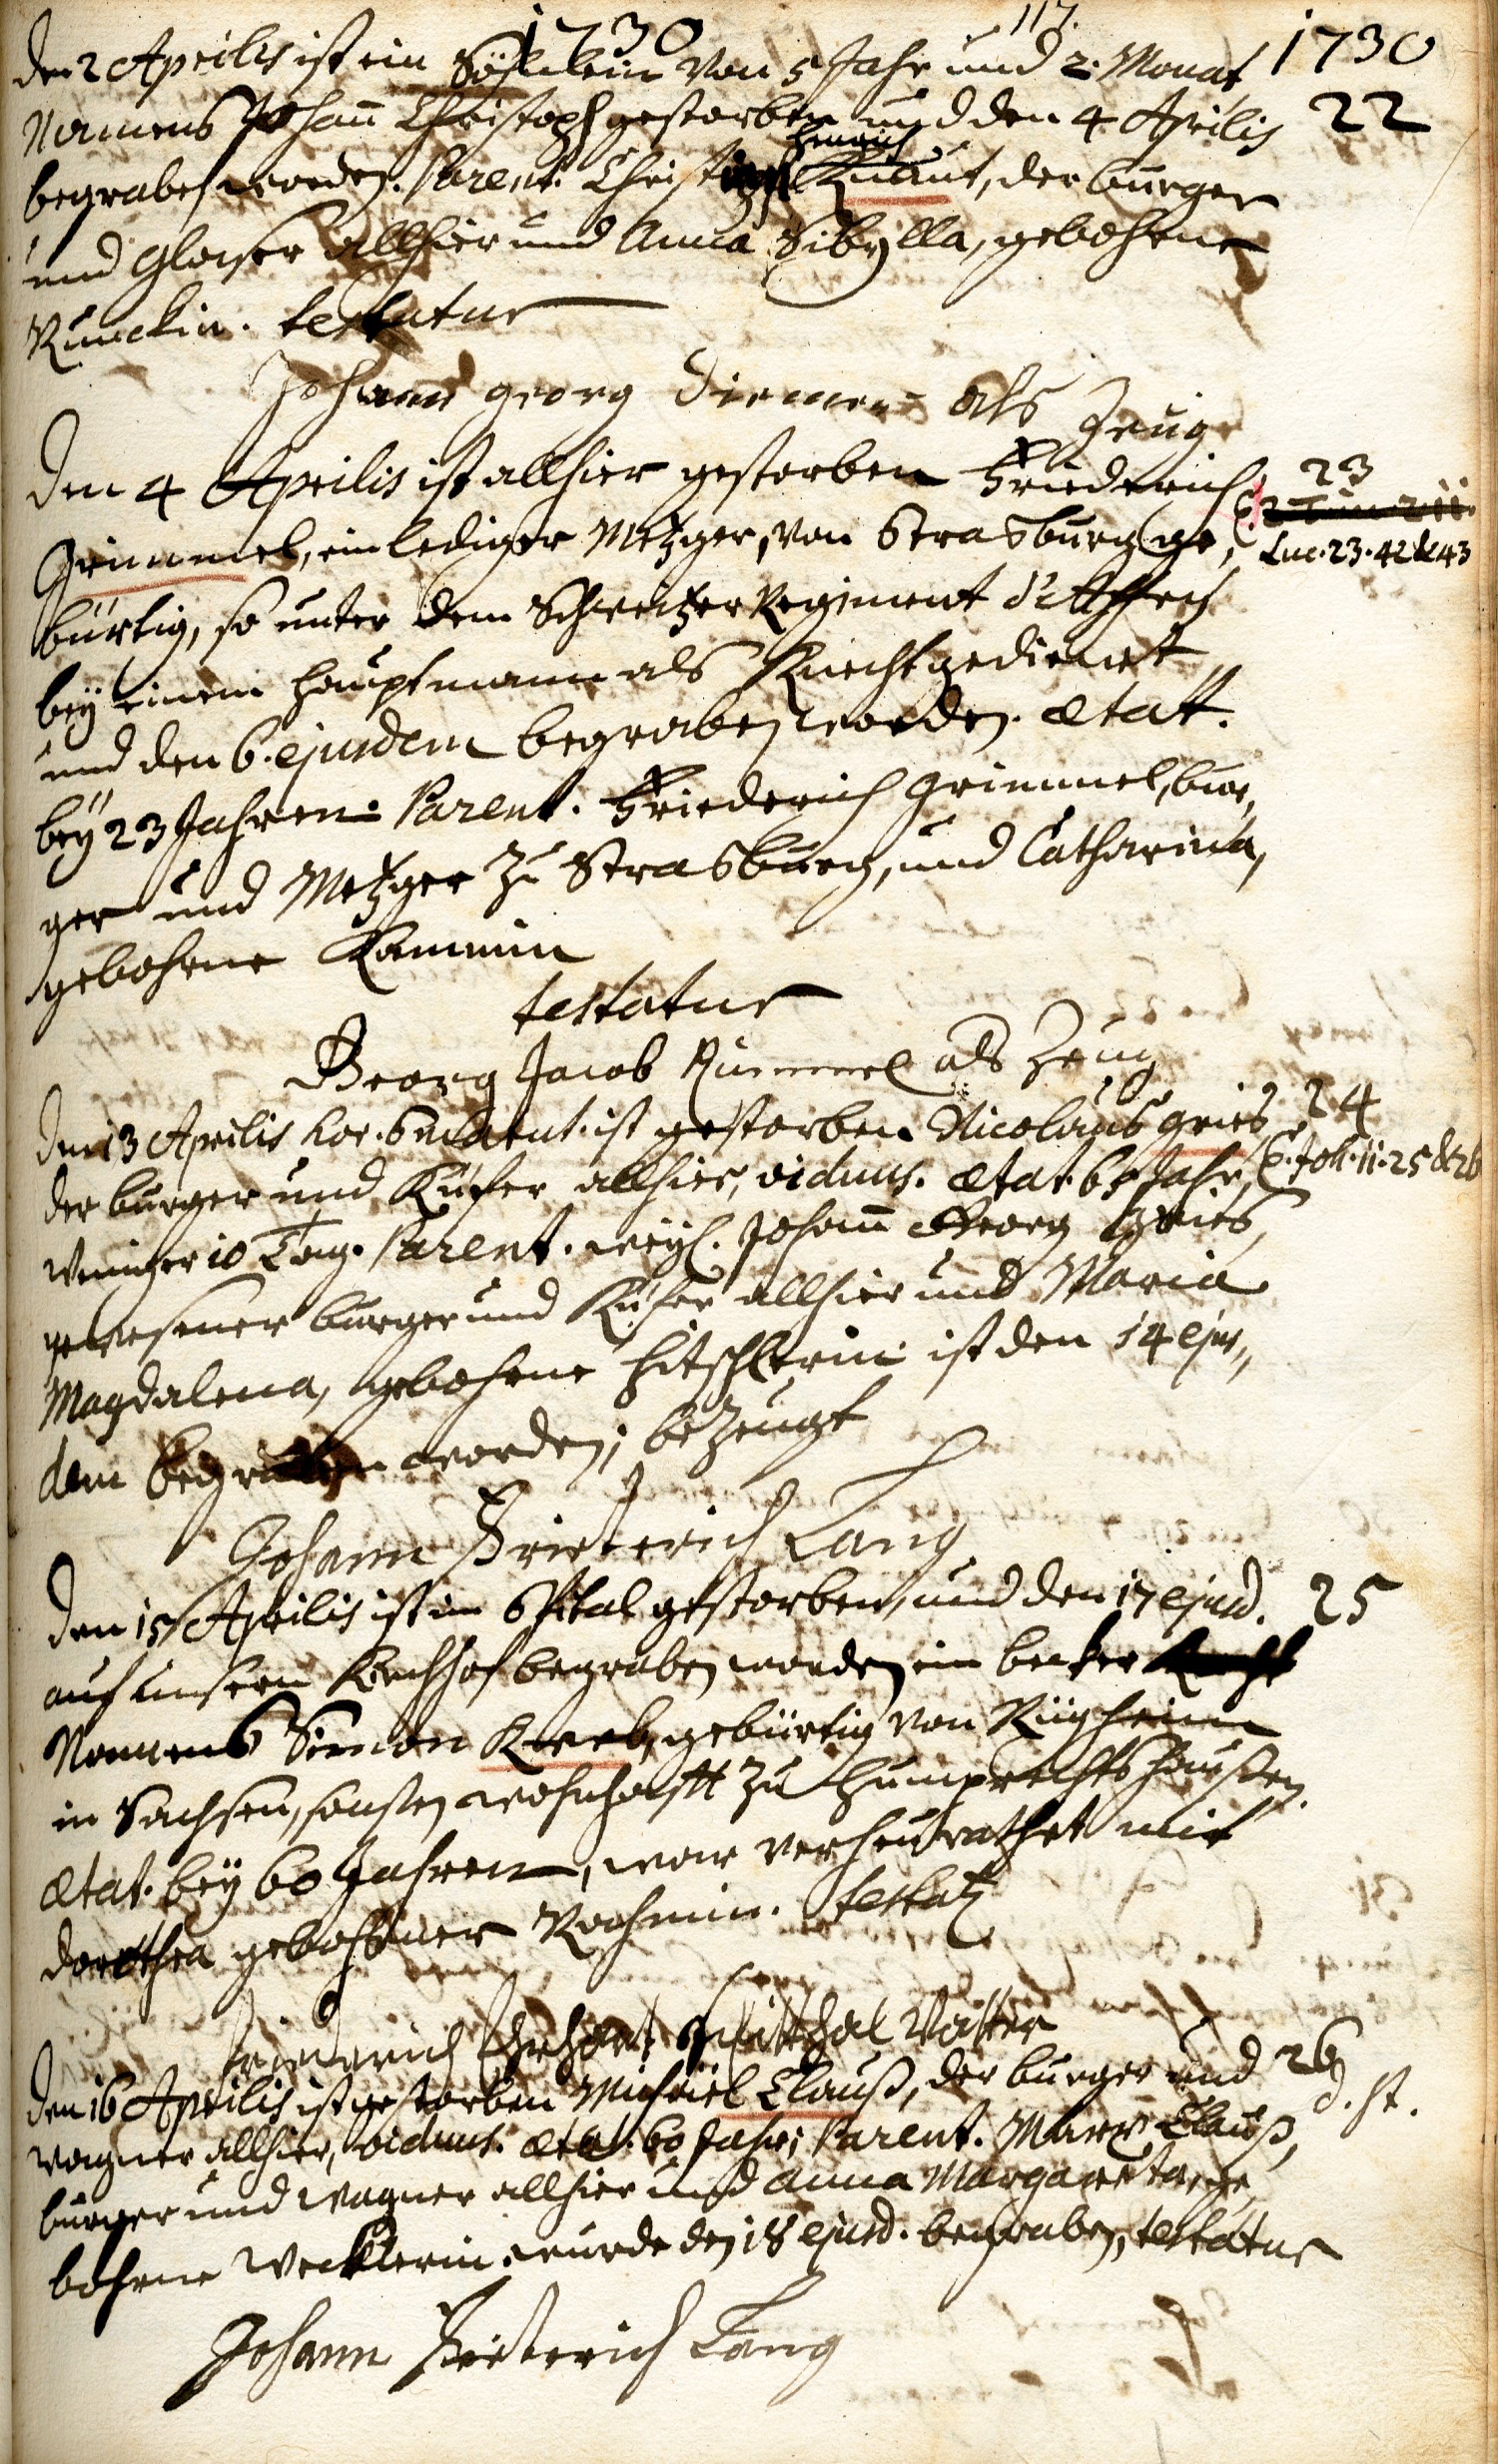 1730 117. 1730
den 2 Aprilis ist ein Söhnlein von 5 Jahr und 2. Monat
Namens Johañ Christoph gestorben und den 4 Aprilis 22
Henrich
begraben worden. Parent. Christ Knaut, der burger
und Glaser allhier und Anna Sibylla, gebohrne
Runckin. testatur
Johann georg Diemer als Zeug
den 4 Aprilis ist allhier gestorben Friederich 23
Grimmel, ein lediger Metzger, von Strasburg ge,
Luc. 23. 42 & 43
bürtig, so unter dem Schweitzer Regiment
bey einem Hauptmann als Knecht gedienet
und den 6. ejusdem begraben worden. ætat.
bey 23 Jahren. Parent. Friederich Grimmel, bur,
ger und Metzger zu Strasburg, und Catharina,
gebohrne Kammin
testatur
Georg Jacob Rümmel als Zeug
den 13 Aprilis hor. 6 ist gestorben Nicolaus Gries 24
der burger und Küfer allhier, viduus. ætat. 65 Jahr, C. Joh. 11. 25 & 26
weniger 10 Tag. Parent. weyl. Johañ Georg Gries,
gewesener burger und Küfer allhier und Maria
Magdalena, gebohrne Hitschlerin ist den 14 ejus,,
dem begraben worden; bezeugt
Johann Frieterich Lang
den 15 Aprilis ist im Spital gestorben, und den 17 ejusd. 25
auf unsern Kirchhof begraben worden ein becker Knecht
Namens Simon Kreb, gebürtig von Rügheim
in Sachsen, sonsten wohnhafft zu Humprechtshausen.
ætat. bey 60 Jahren, war verheurathet mit
dorothea gebohrner Rochmin. testat.
Friederich Ehrhart Spitthal Vatter
den 16 Aprilis ist gestorben Michäel Clauß, der burger und 26
d. st.
wagner allhier, viduus. ætat. 60 Jahr; Parent. Marx Clauß,
burger und wagner allhier und Anna Margareta, ge,
bohrne Wecklerin wurde den 18 ejusd. begraben, testatur
Johann Frieterich Lang